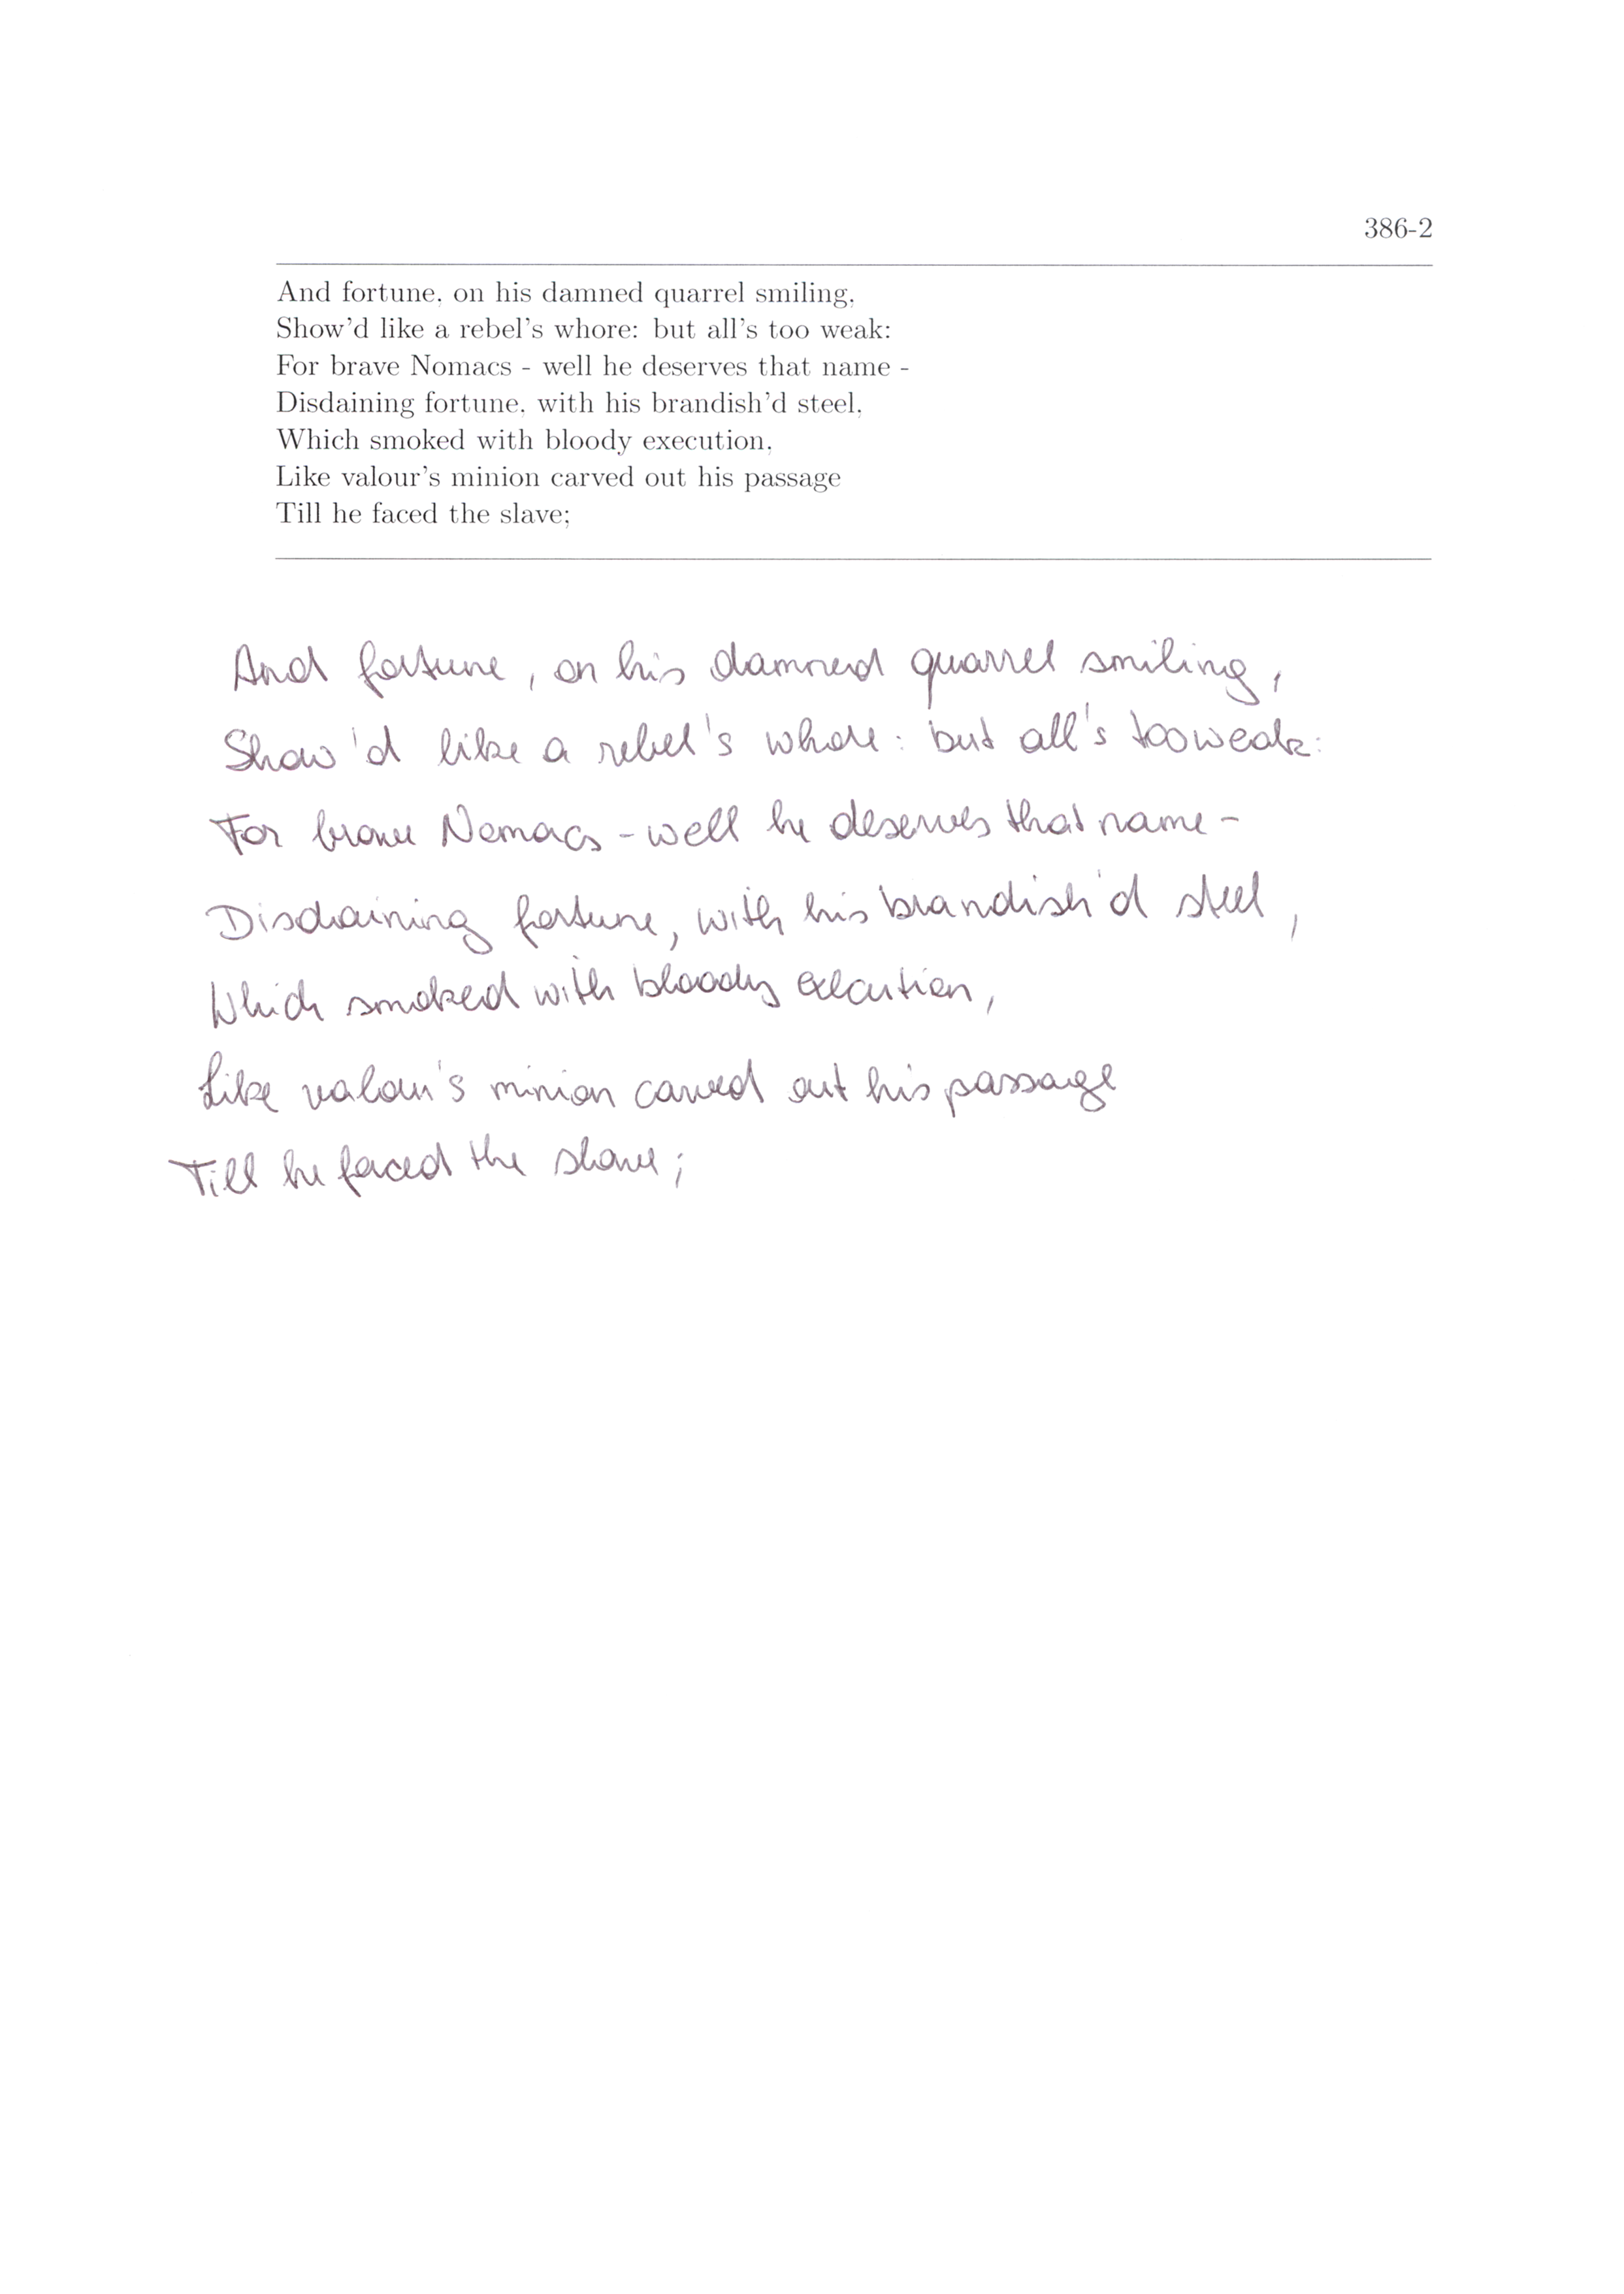 386-2
And fortune, on his damned quarrel smiling,
Show'd like a rebel's whore: but all's too weak:
For brave Nomacs - well he deserves that name -
Disdaining fortune, with his brandish'd steel,
Which smoked with bloody execution,
Like valour's minion carved out his passage
Till he faced the slave;
And fortune, on his damned quarrel smiling,
Show'd like a rebel's whore: but all's too weak:
For brave Nomacs - well he deserves that name -
Disdaining fortune, with his brandish'd steel,
Which smoked with bloody execution,
Like valour's minion carved out his passage
Till he faced the slave;